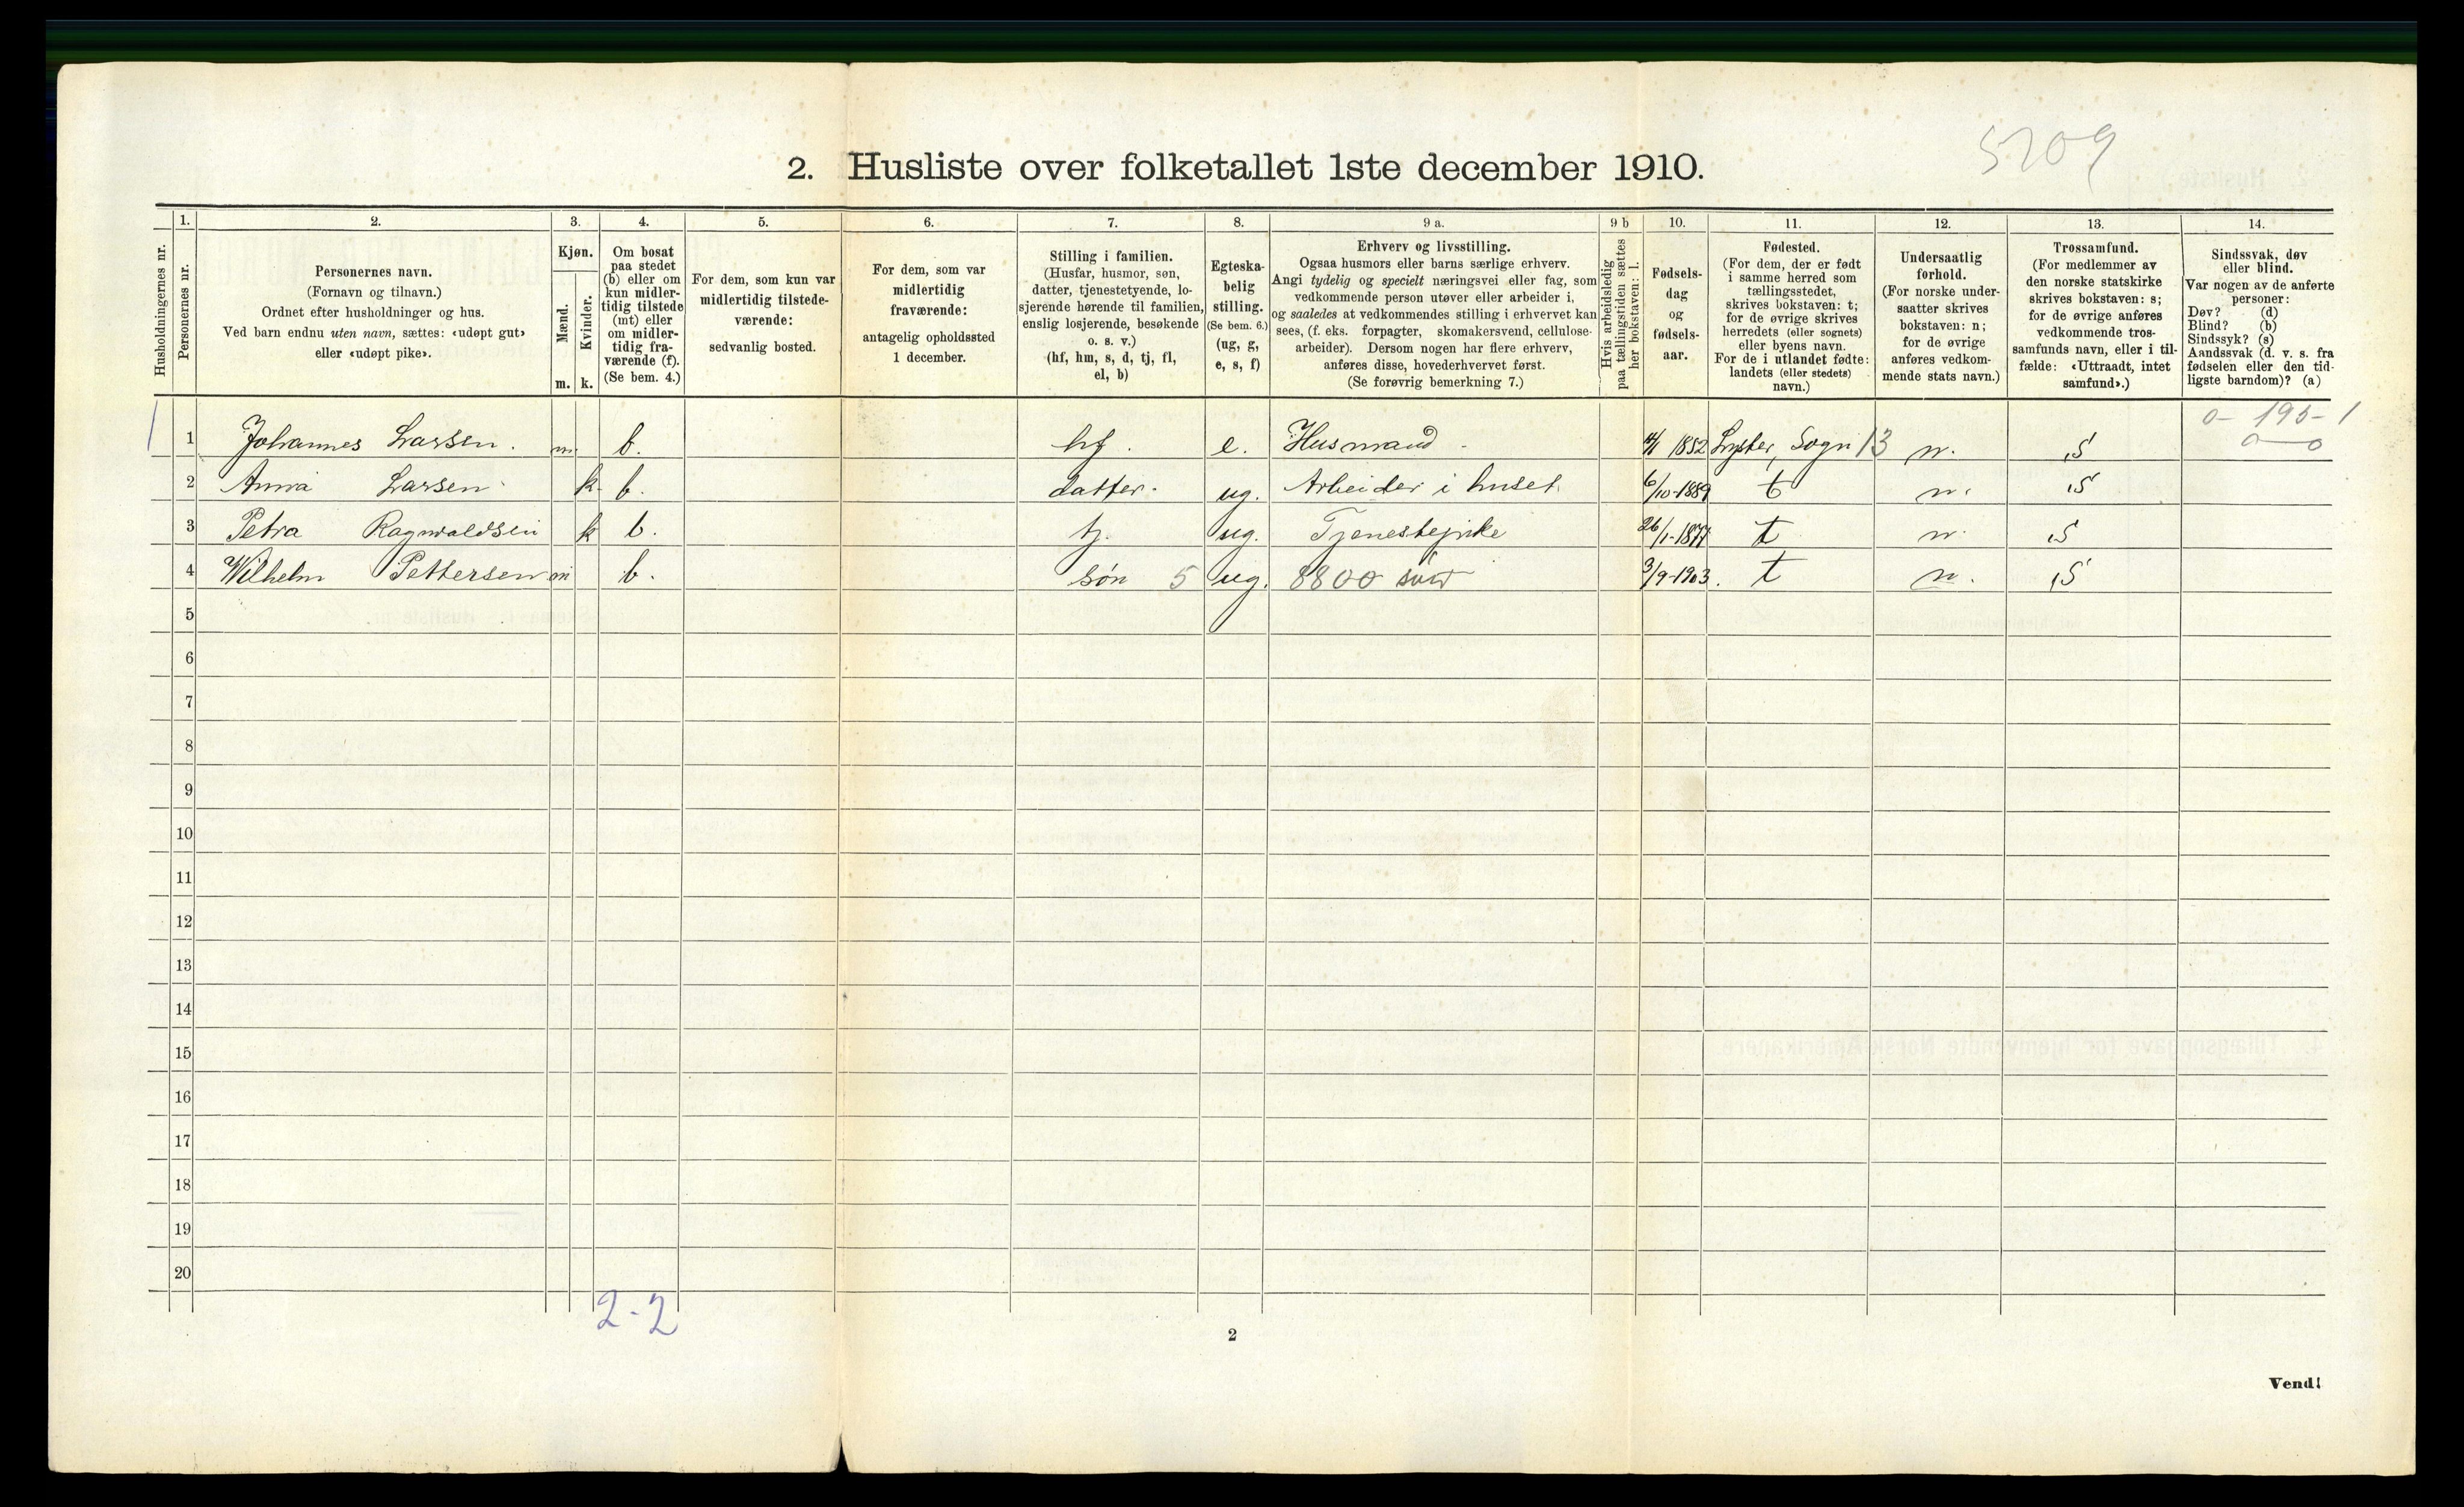 5209
2. Husliste over folketallet 1ste december 1910.
1. 2. 3. 4. 5. 6. 7. 8. 9 a. 9 b 10. 11. 12. 13. 14.
Husholdningernes nr.
Personernes nr.
Personernes navn.
(Fornavn og tilnavn.)
Ordnet efter husholdninger og hus.
Ved barn endnu uten navn, sættes: «udøpt gut»
eller «udøpt pike».
Kjøn.
Mænd.
Kvinder.
m. k.
Om bosat
paa stedet
(b) eller om
kun midler-
tidig tilstede
(mt) eller
om midler-
tidig fra-
værende (f).
(Se bem. 4.)
For dem, som kun var
midlertidig tilstede-
værende:
sedvanlig bosted.
For dem, som var
midlertidig
fraværende:
antagelig opholdssted
1 december.
Stilling i familien.
(Husfar, husmor, søn,
datter, tjenestetyende, lo-
sjerende hørende til familien,
enslig losjerende, besøkende
o. s. v.)
(hf, hm, s, d, tj, fl,
el, b)
Egteska-
belig
stilling.
(Se bem. 6.)
(ug, g,
e, s, f)
Erhverv og livsstilling.
Ogsaa husmors eller barns særlige erhverv.
Angi tydelig og specielt næringsvei eller fag, som
vedkommende person utøver eller arbeider i,
og saaledes at vedkommendes stilling i erhvervet kan
sees, (f. eks. forpagter, skomakersvend, cellulose-
arbeider). Dersom nogen har flere erhverv,
anføres disse, hovederhvervet først.
(Se forøvrig bemerkning 7.)
Hvis arbeidsledig
paa tællingstiden sættes
her bokstaven: l.
Fødsels-
dag
og
fødsels-
aar.
Fødested.
(For dem, der er født
i samme herred som
tællingsstedet,
skrives bokstaven: t;
for de øvrige skrives
herredets (eller sognets)
eller byens navn.
For de i utlandet fødte:
landets (eller stedets)
navn.)
Undersaatlig
forhold.
(For norske under-
saatter skrives
bokstaven: n;
for de øvrige
anføres vedkom-
mende stats navn.)
Trossamfund.
(For medlemmer av
den norske statskirke
skrives bokstaven: s;
for de øvrige anføres
vedkommende tros-
samfunds navn, eller i til-
fælde: «Uttraadt, intet
samfund».)
Sindssvak, døv
eller blind.
Var nogen av de anførte
personer:
Døv? (d)
Blind? (b)
Sindssyk? (s)
Aandssvak (d. v. s. fra
fødselen eller den tid-
ligste barndom)? (a)
0- 195- 1
0 - 0
1 1 Johannes Larsen. m. b. hf. e. Husmand - 1852 Lyster, Sogn 13 n. S
2 Anna Larsen k. b. datter. ug. Arbeider i huset. 6/10-1889 t n. S
3 Petra Ragnvaldsen k b. tj. ug. Tjenestepike 26/1-1877 t n. S
4 Wilhelm Pettersen m b. søn 5 ug. 8800 3/9-1903. t n. S
5
6
7
8
9
10
11
12
13
14
15
16
17
18
19
20
2-2
2
Vend!